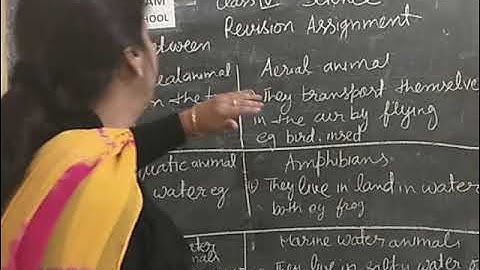 AM
HOOL
Class IV Science
Revision Assignment
between
eal animal
Aerial animal
on the t
They transport themselve
in the air by flying
eg bird. insed
uatic animal
Amphibians
water eg
They live in land in water
both eg frog
ter
mals
Marine water animals
They live in salty water o